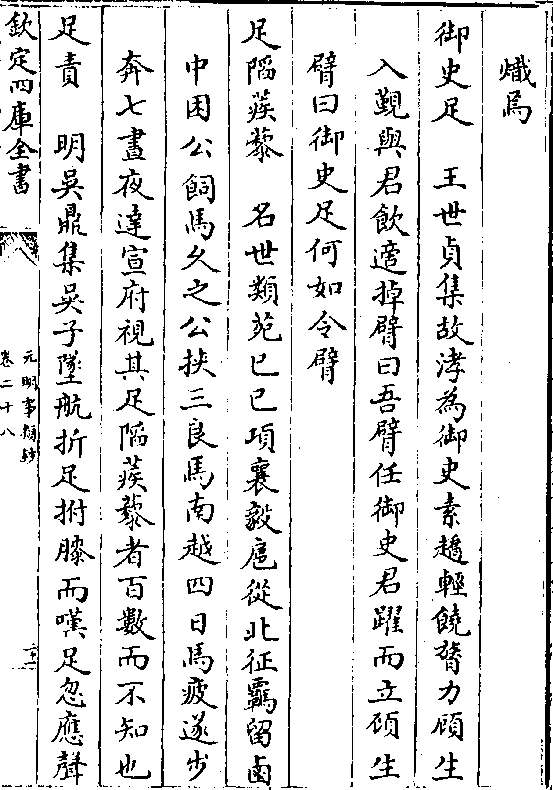 熾焉
御史足　王世貞集故淳為御史素趫輕饒膂力頎生
入覲與君飲適掉臂曰吾臂任御史君躍而立頎生
臂曰御史足何如令臂
足陷蒺藜　名世類苑己巳項襄毅扈從北征羈留鹵
中困公飼馬久之公挾三良馬南越四日馬疲遂步
奔七晝夜達宣府視其足陷蒺藜者百數而不知也
足責　明吳鼎集吳子墜航折足拊膝而嘆足忽應聲
欽定四庫全書
元明事類鈔
卷二十八